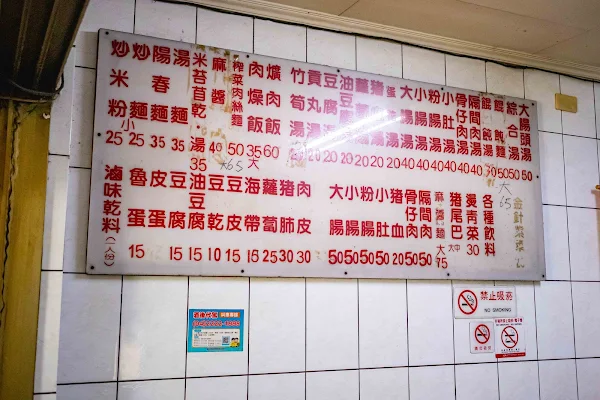 炒米粉 小 25
炒麵 25
陽春麵 35
湯麵 35
米苔目乾湯 35
麻醬麵 40 大65
榨菜肉絲麵 50
肉燥飯 35 大
爌肉飯 60
竹筍湯
貢丸湯 20
豆腐湯 20
油豆腐湯 20
蘿蔔湯 20
豬血湯 20
大腸湯 40
小腸湯 40
粉腸湯 40
小肚湯 40
骨仔肉湯 40
隔間肉湯 40
餛飩湯
餛飩麵 50 大65
綜合湯 50
大腸頭湯 50
滷味乾料(一人份)
魯蛋 15
皮蛋
豆腐 15
油豆腐 15
豆乾 10
豆皮 15
海帶 15
蘿蔔 25
豬肺 30
肉皮 30
大腸 50
小腸 50
粉腸 50
小肚 50
豬血 20
骨仔肉 50
隔間肉 50
麻醬麵 大75
豬尾巴 大中
燙青菜 30
各種飲料
金針
禁止吸菸
NO SMOKING